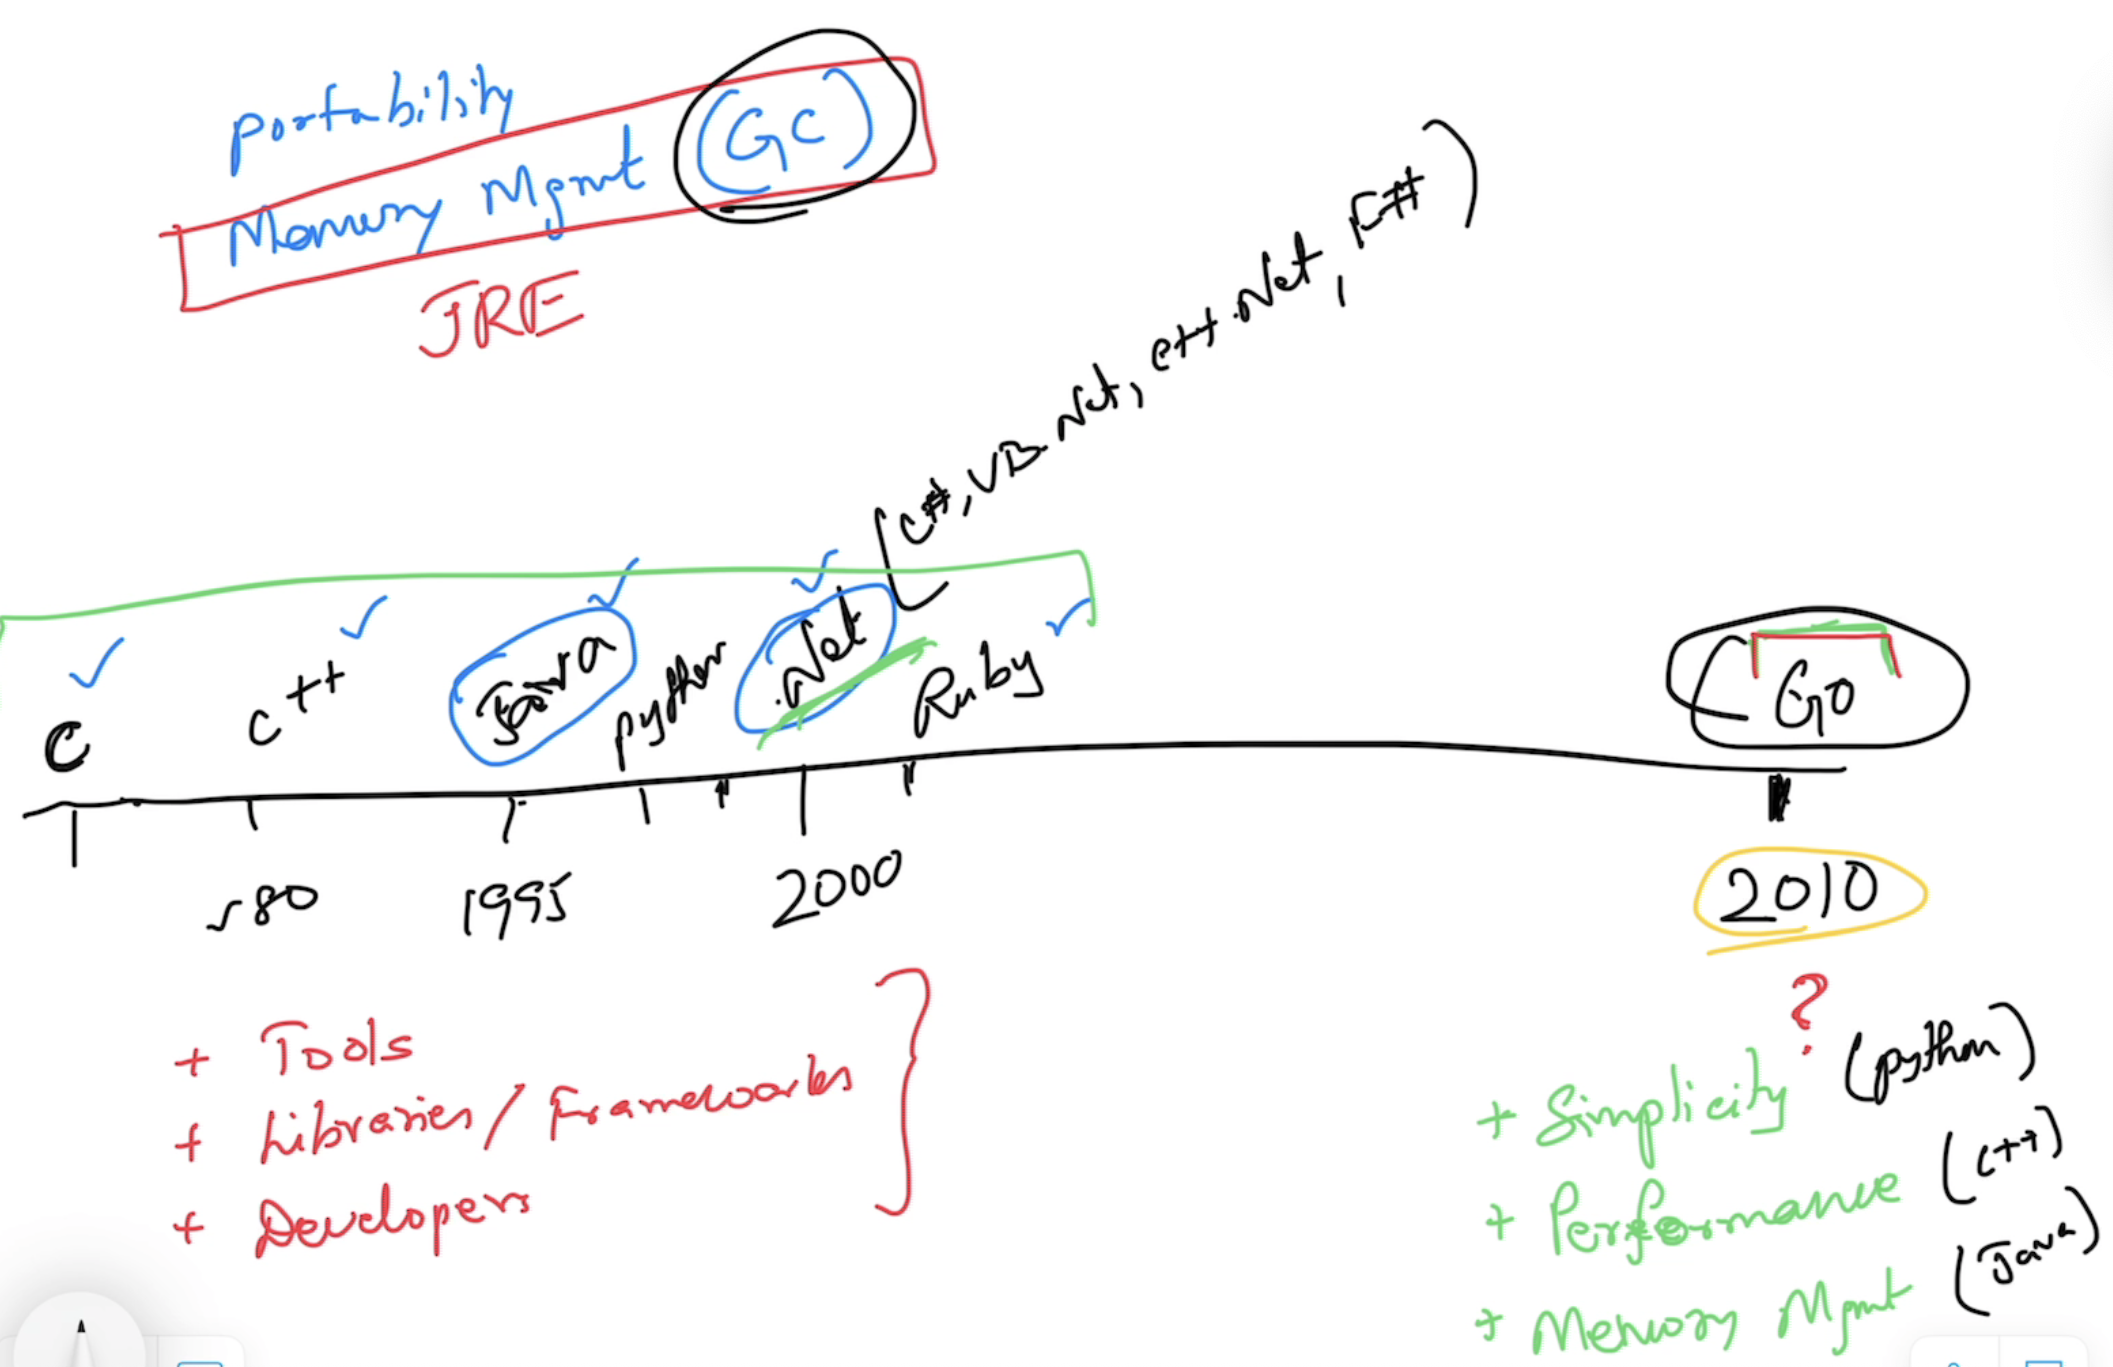 portability
Memory Mgmt (GC)
JRE
(C#, VB.Net, C++.Net, F#)
C
C++
Java
python
.Net
Ruby
GO
~80
1995
2000
2010
?
+ Tools
+ Libraries / Frameworks
+ Developers
+ Simplicity (python)
+ Performance (C++)
+ Memory Mgmt (Java)